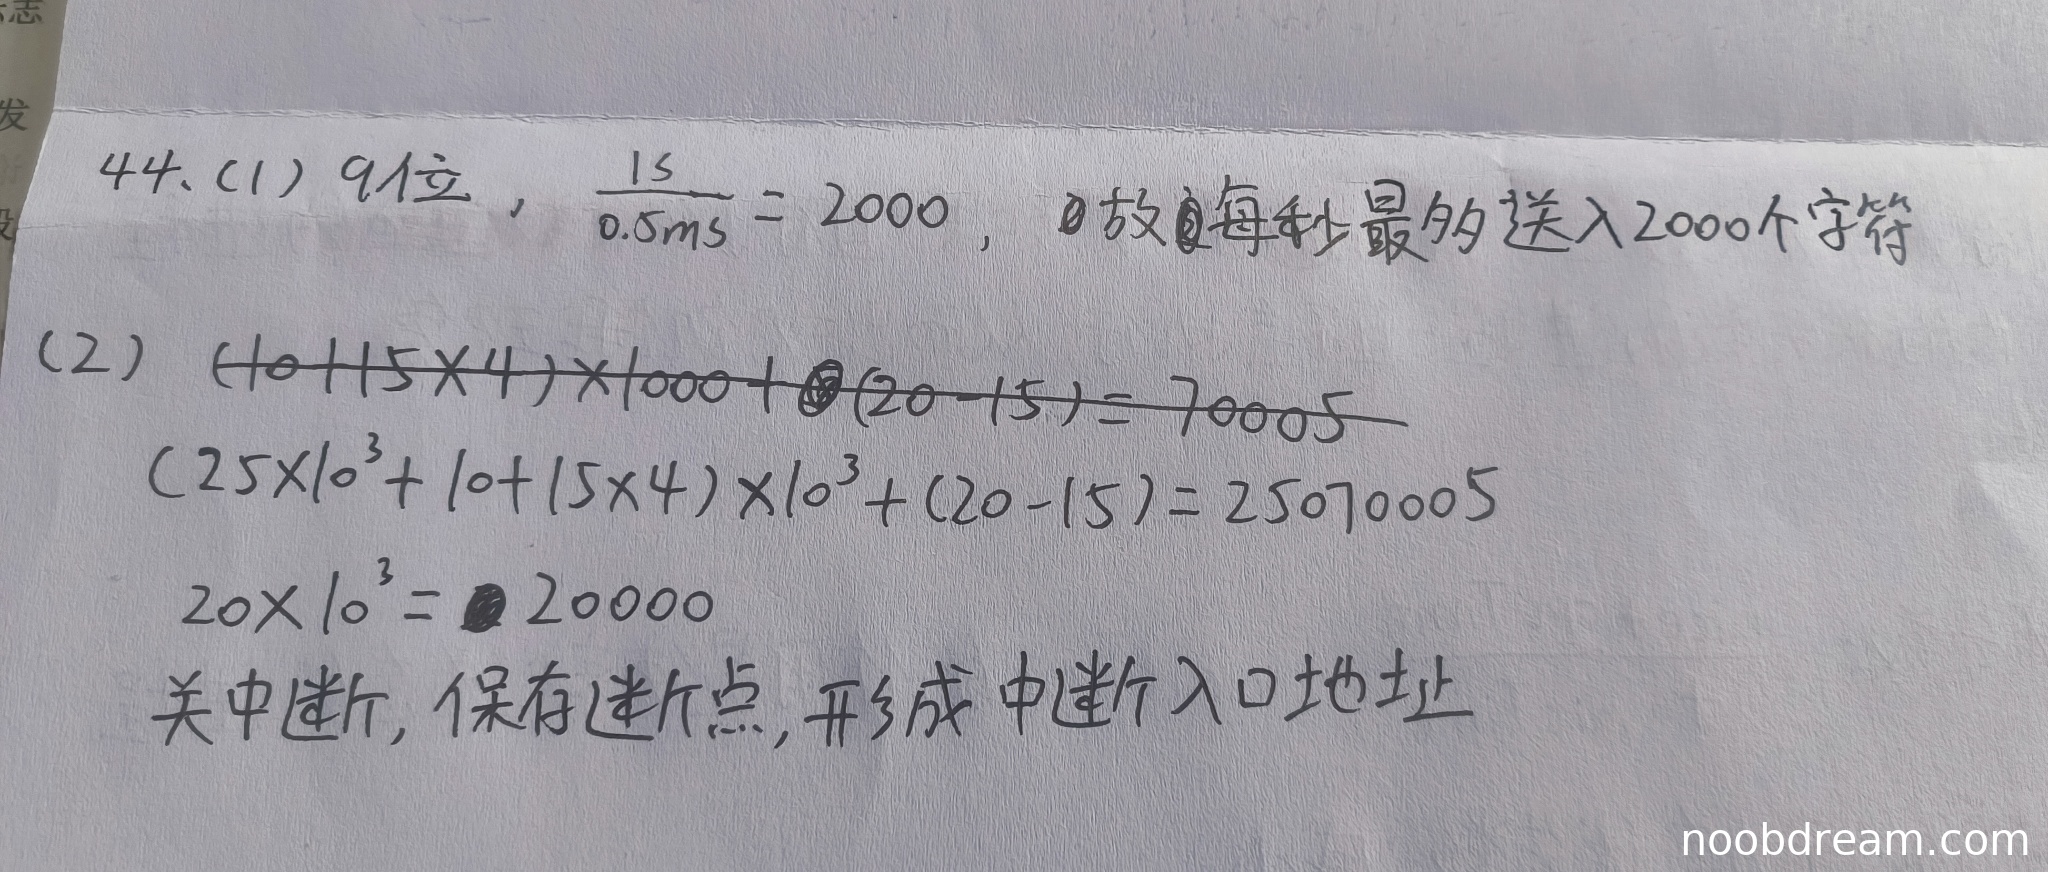 志
发
44、(1) 9位, 1s/0.5ms = 2000, 故每秒最多送入2000个字符
(2) (10+15×4)×1000+(20-15)=70005
(25×10³+10+15×4)×10³+(20-15)=25070005
20×10³=20000
关中断, 保存断点, 形成中断入口地址
noobdream.com